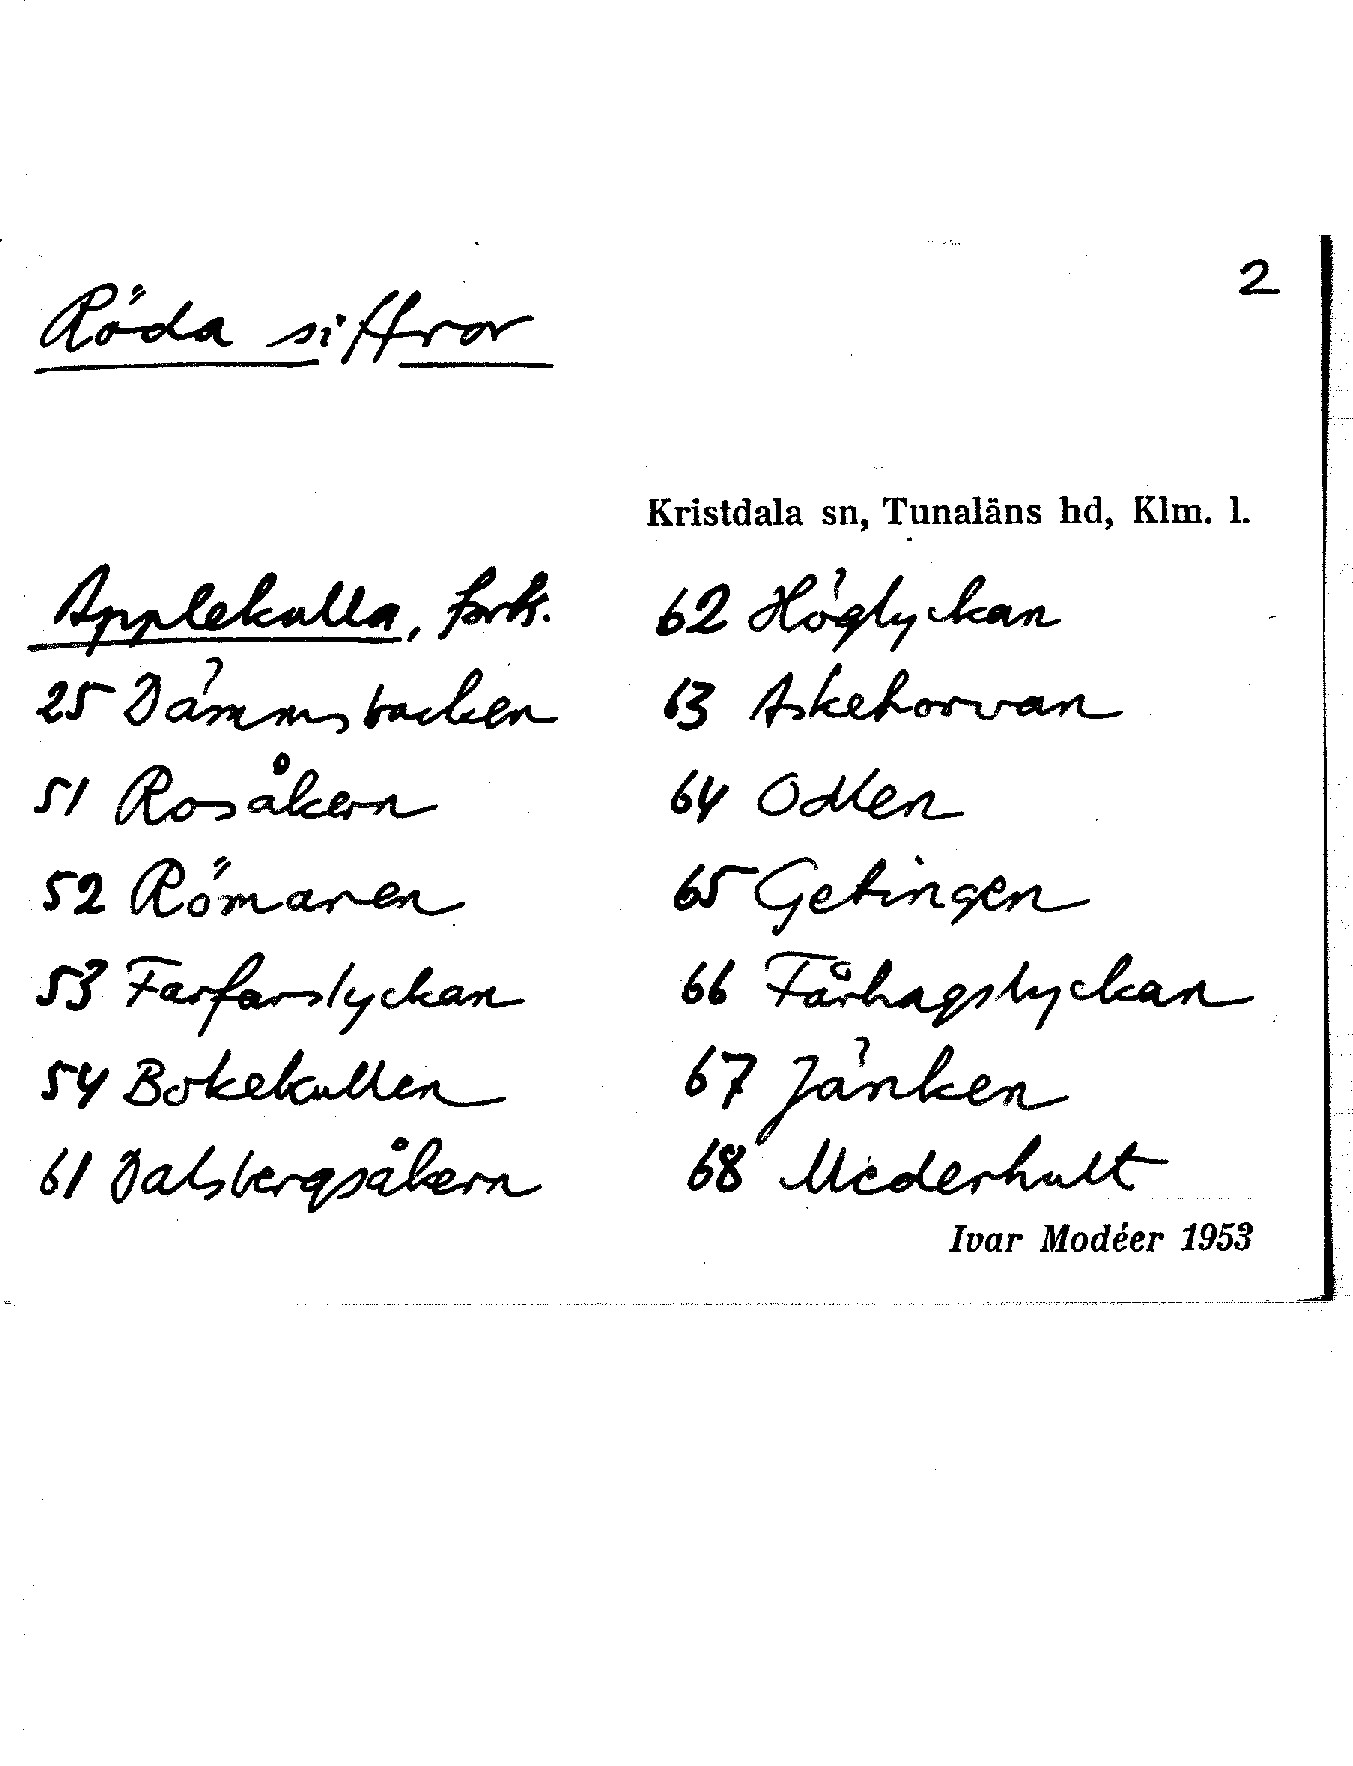 2
Röda siffror
Kristdala sn, Tunaläns hd, Klm. l.
Applekulla, forts.
25 Dämmsbacken
51 Rosåkern
52 Römaren
53 Farfarslyckan
54 Bokekullen
61 Dalsbergsåkern
62 Höglyckan
63 Askehorvan
64 Odlen
65 Getingen
66 Fårhagslyckan
67 Jänken
68 Mederhult
Ivar Modéer 1953